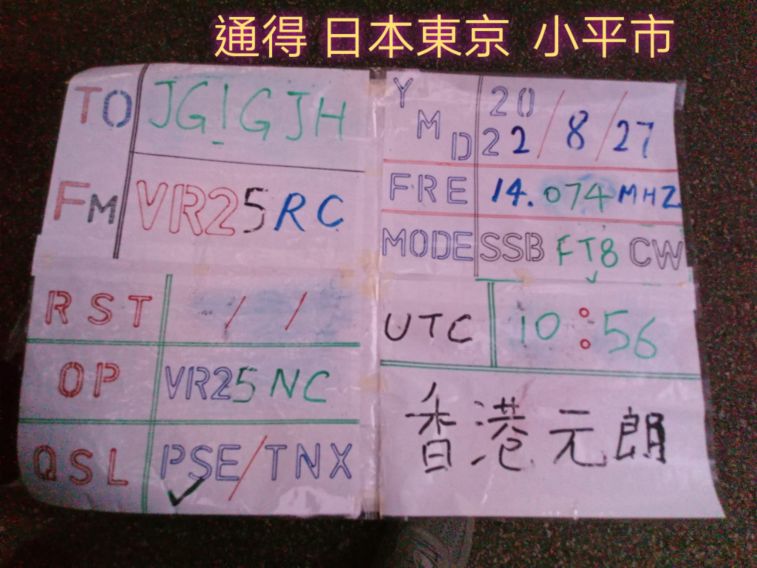 通得 日本東京 小平市
TO JG1GJH
FM VR25RC
RST / /
OP VR25NC
QSL PSE/TNX
YMD 2022/8/27
FRE 14.074MHZ
MODE SSB FT8 CW
UTC 10:56
香港元朗